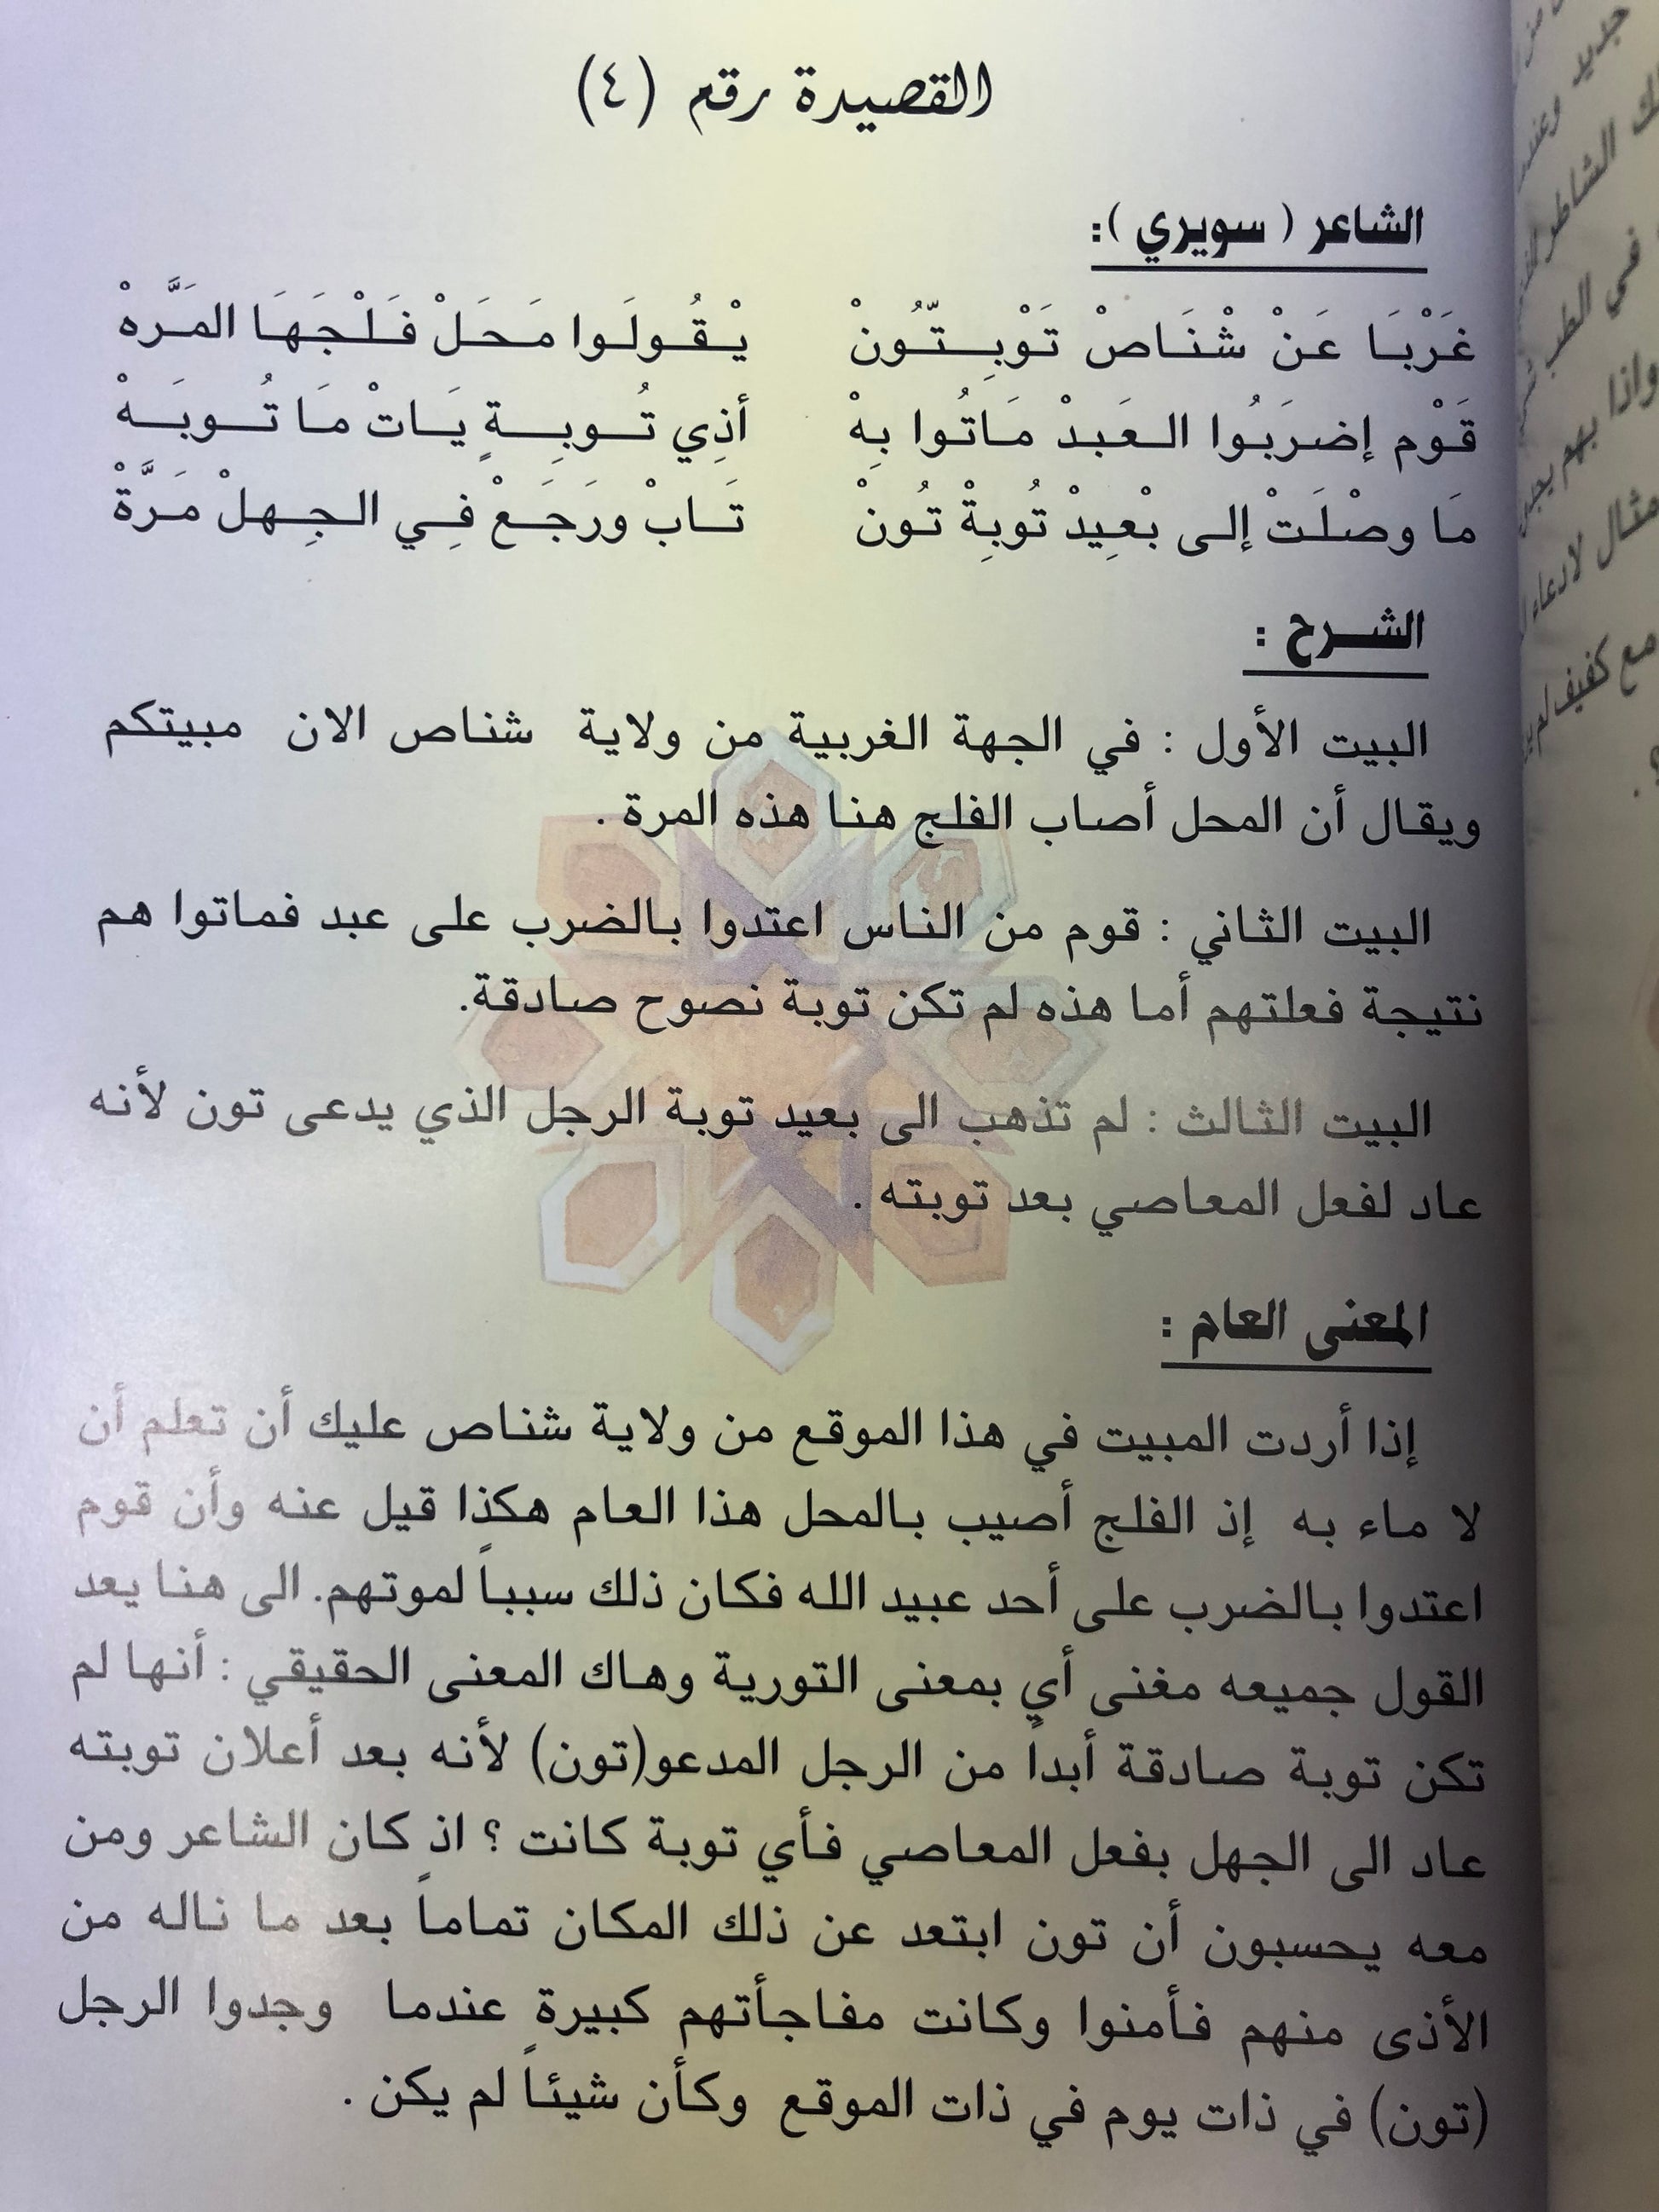 القصيدة رقم (٤)
الشاعر ( سويري ):
غَرْبَا عَنْ شْنَاصْ تَوْبِتّونْ يْقُولَوا مَحَلْ فَلْجَهَا المَرَّهْ
قَوْم إضرَبُوا العَبدْ مَاتُوا بِهْ أذِي تُوبِةٍ يَاتْ مَا تُوبَهْ
مَا وصْلَتْ إلى بْعِيدْ تُوبِةْ تُونْ تَابْ ورَجَعْ فِي الجِهلْ مَرَّةْ
الشرح :
البيت الأول : في الجهة الغربية من ولاية شناص الان مبيتكم
ويقال أن المحل أصاب الفلج هنا هذه المرة .
البيت الثاني : قوم من الناس اعتدوا بالضرب على عبد فماتوا هم
نتيجة فعلتهم أما هذه لم تكن توبة نصوح صادقة.
البيت الثالث : لم تذهب الى بعيد توبة الرجل الذي يدعى تون لأنه
عاد لفعل المعاصي بعد توبته .
المعنى العام :
إذا أردت المبيت في هذا الموقع من ولاية شناص عليك أن تعلم أن
لا ماء به إذ الفلج أصيب بالمحل هذا العام هكذا قيل عنه وأن قوم
اعتدوا بالضرب على أحد عبيد الله فكان ذلك سبباً لموتهم. الى هنا يعد
القول جميعه مغنى أي بمعنى التورية وهاك المعنى الحقيقي : أنها لم
تكن توبة صادقة أبداً من الرجل المدعو(تون) لأنه بعد أعلان توبته
عاد الى الجهل بفعل المعاصي فأي توبة كانت ؟ اذ كان الشاعر ومن
معه يحسبون أن تون ابتعد عن ذلك المكان تماماً بعد ما ناله من
الأذى منهم فأمنوا وكانت مفاجأتهم كبيرة عندما وجدوا الرجل
(تون) في ذات يوم في ذات الموقع وكأن شيئاً لم يكن .
جديد وعند
ك الشاطر
في الطب
واذا بهم
مثال لادعاء
مع كفيف لم